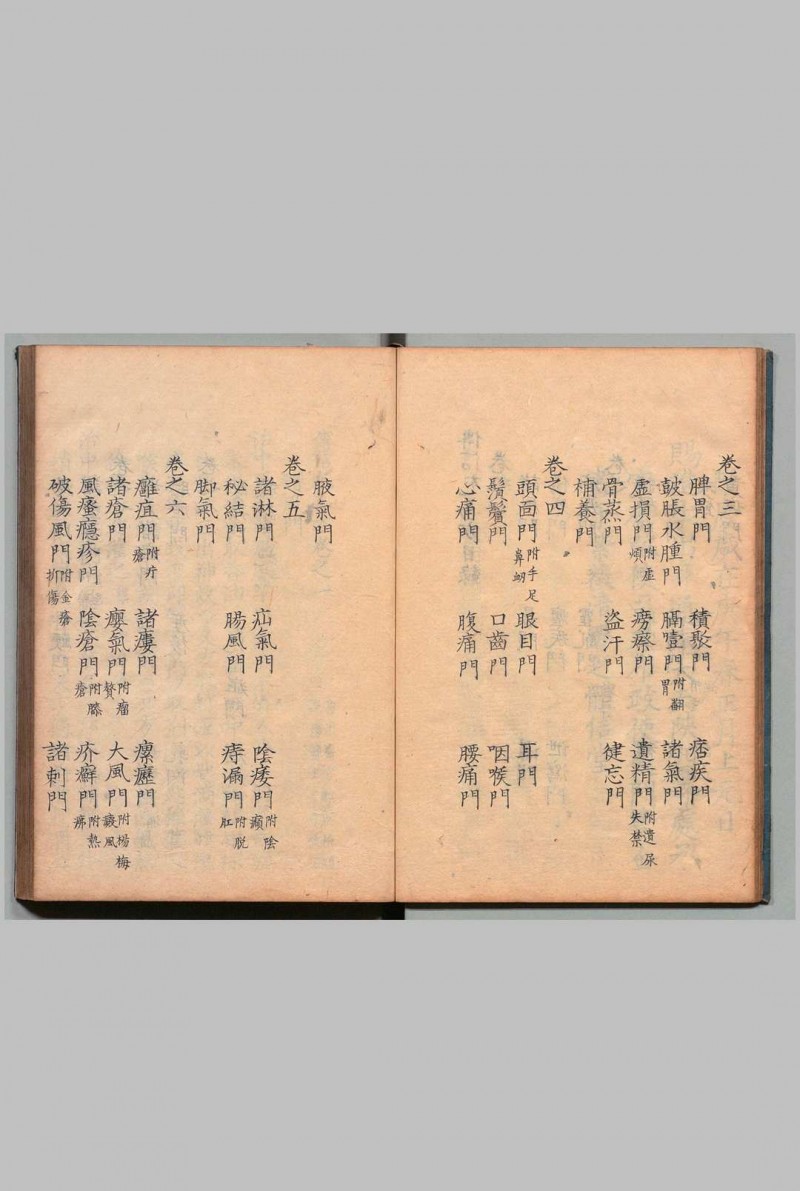 卷之三
脾胃門 積聚門 痞疾門
皷脹水腫門 膈噎門附翻胃 諸氣門
虛損門附虛煩 癆瘵門 遺精門附遺尿失禁
骨蒸門 盜汗門 健忘門
補養門
卷之四
頭面門附手足鼻衂 眼目門 耳門
鬚鬢門 口齒門 咽喉門
心痛門 腹痛門 腰痛門
腋氣門
卷之五
諸淋門 疝氣門 陰痿門附陰㿗
秘結門 腸風門 痔漏門附脫肛
脚氣門
卷之六
癰疽門附疔瘡 諸瘻門 瘰癧門
諸瘡門 癭氣門附瘤贅 大風門附楊梅癜風
風瘙癮疹門 陰瘡門附臁瘡 疥癬門附熱疿
破傷風門附金瘡折傷 諸刺門